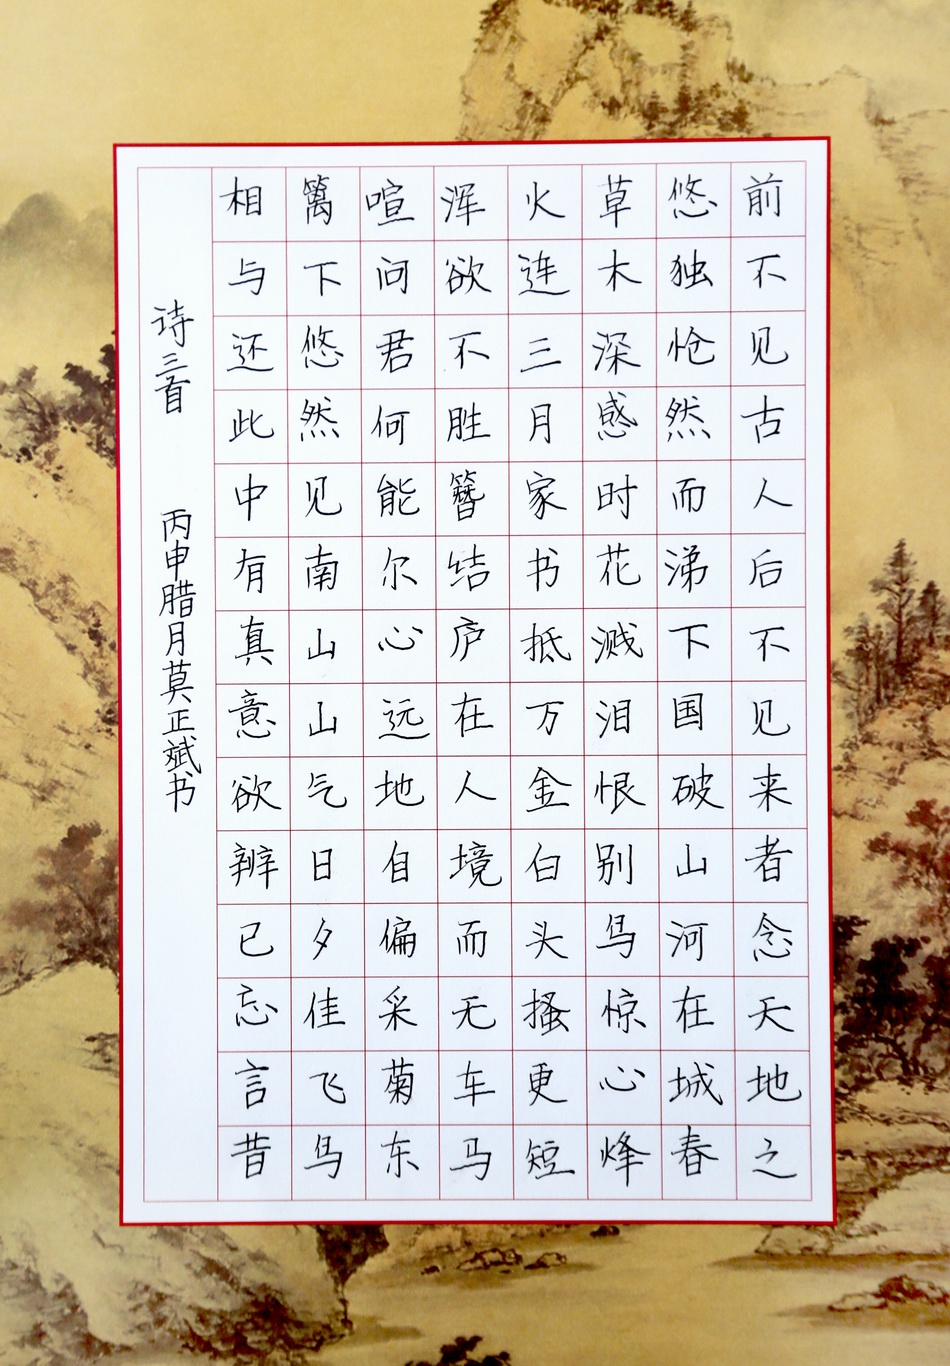 前不见古人后不见来者念天地之
悠独怆然而涕下国破山河在城春
草木深感时花溅泪恨别鸟惊心烽
火连三月家书抵万金白头搔更短
浑欲不胜簪结庐在人境而无车马
喧问君何能尔心远地自偏采菊东
篱下悠然见南山山气日夕佳飞鸟
相与还此中有真意欲辨已忘言昔
诗三首 丙申腊月莫正斌书